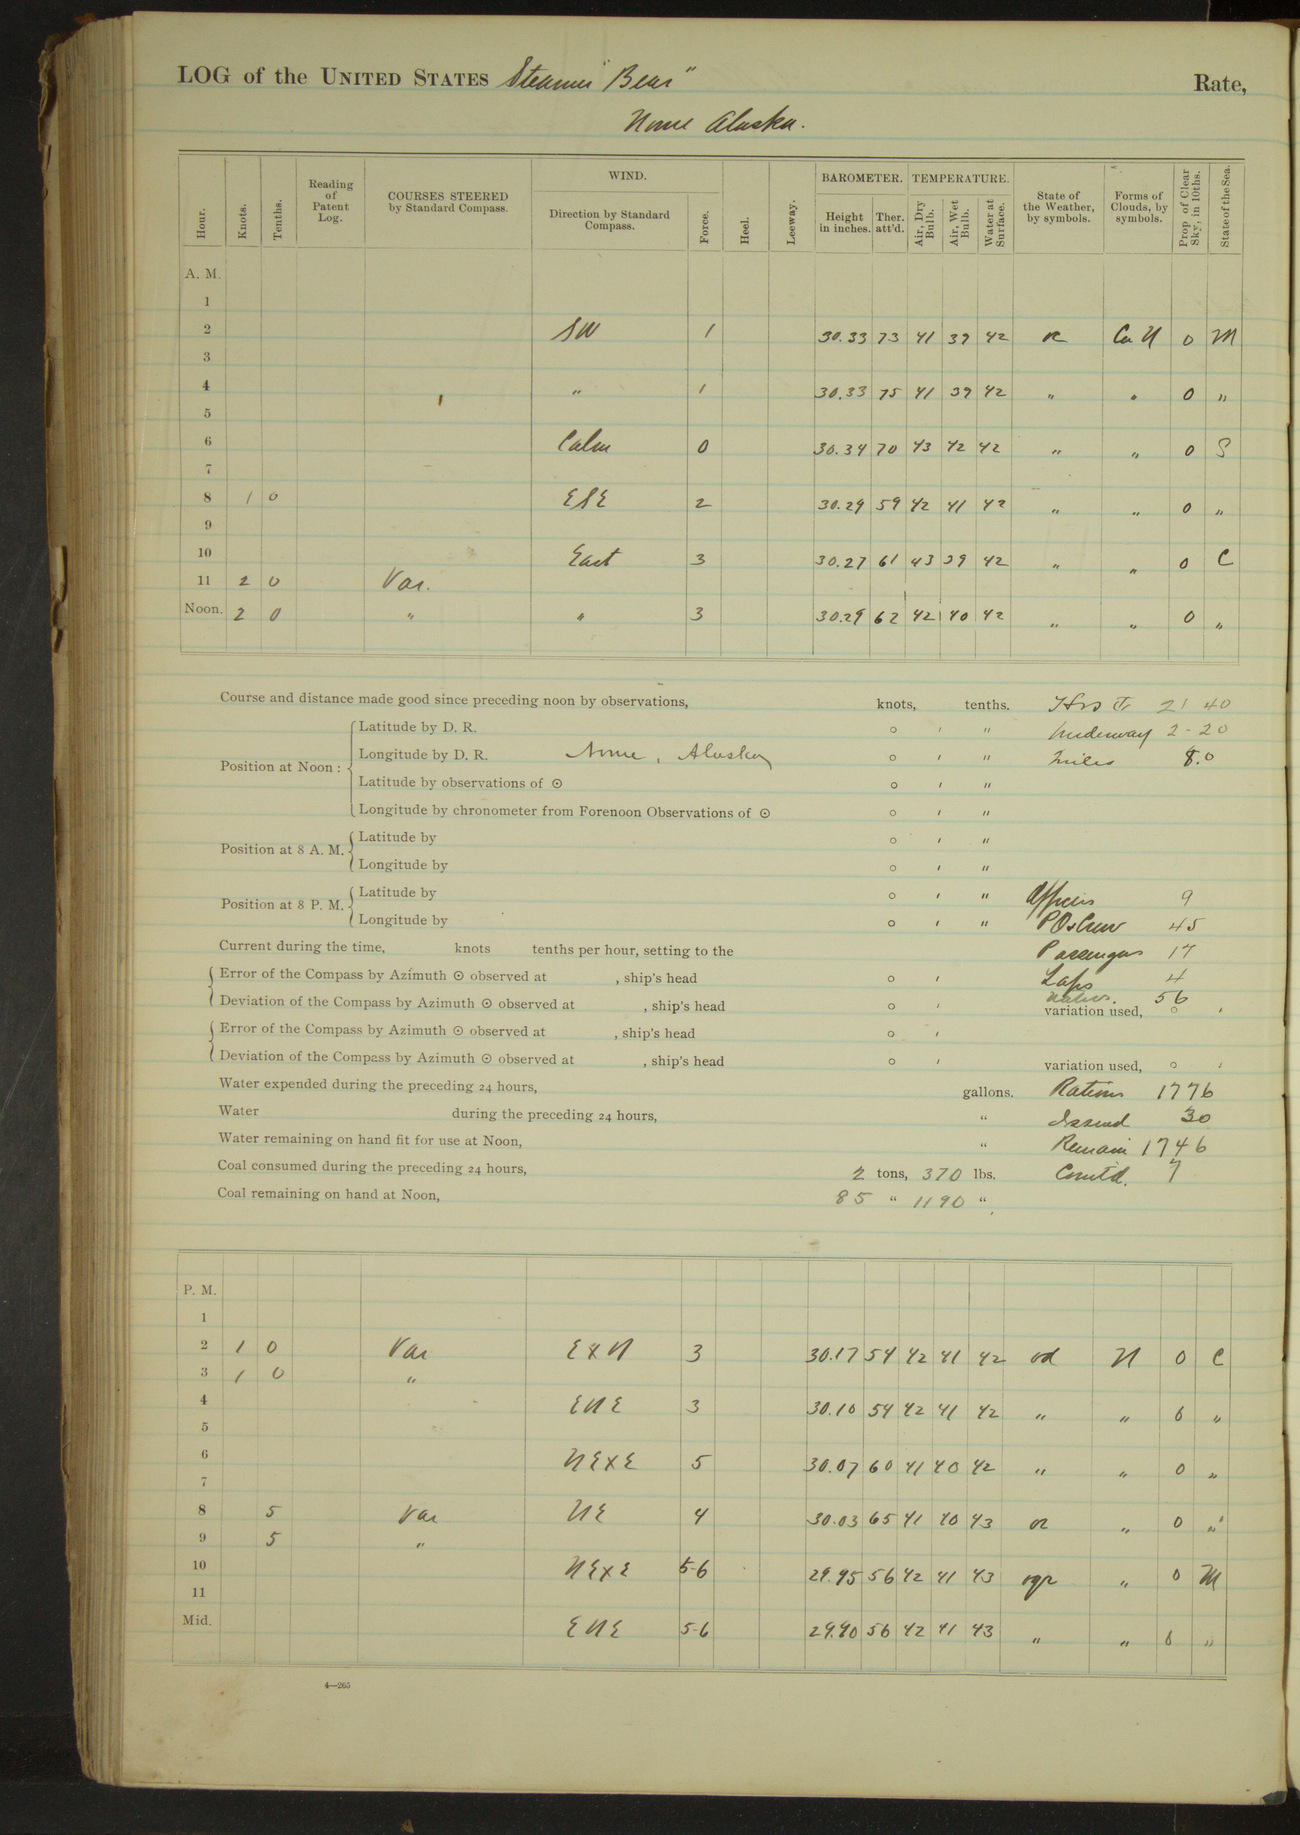 LOG of the UNITED STATES Steamer "Bear" Rate,
Nome Alaska.
Hour. Knots. Tenths. Reading of Patent Log. COURSES STEERED by Standard Compass. WIND. Direction by Standard Compass. Force. Heel. Leeway. BAROMETER. Height in inches. Ther. att'd. TEMPERATURE. Air, Dry Bulb. Air, Wet Bulb. Water at Surface. State of the Weather, by symbols. Forms of Clouds, by symbols. Prop. of Clear Sky, in 10ths. State of the Sea.
A. M.
1
2 SW 1 30.33 73 41 39 42 oc Cu N 0 M
3
4 " 1 30.33 75 41 39 42 " " 0 "
5
6 Calm 0 30.34 70 43 42 42 " " 0 S
7
8 1 0 ESE 2 30.29 59 42 41 42 " " 0 "
9
10 East 3 30.27 61 43 39 42 " " 0 C
11 2 0 Var.
Noon. 2 0 " " 3 30.29 62 42 40 42 " " 0 "
Course and distance made good since preceding noon by observations, knots, tenths. Hrs 21 40
Position at Noon: Latitude by D. R. ° ' " Underway 2-20
Longitude by D. R. Nome, Alaska ° ' " Miles 8.0
Latitude by observations of ☉ ° ' "
Longitude by chronometer from Forenoon Observations of ☉ ° ' "
Position at 8 A. M. Latitude by ° ' "
Longitude by ° ' "
Position at 8 P. M. Latitude by ° ' " Officers 9
Longitude by ° ' " POs Crew 45
Current during the time, knots tenths per hour, setting to the Passengers 17
Error of the Compass by Azimuth ☉ observed at , ship's head ° ' Laps 4
Natives. 56
Deviation of the Compass by Azimuth ☉ observed at , ship's head ° ' variation used, ° '
Error of the Compass by Azimuth ☉ observed at , ship's head ° '
Deviation of the Compass by Azimuth ☉ observed at , ship's head ° ' variation used, ° '
Water expended during the preceding 24 hours, gallons. Rations 1776
Water during the preceding 24 hours, " Issued 30
Water remaining on hand fit for use at Noon, " Remain 1746
Coal consumed during the preceding 24 hours, 2 tons, 370 lbs. Comtd. 7
Coal remaining on hand at Noon, 85 " 1190 "
P. M.
1
2 1 0 Var E x N 3 30.17 54 42 41 42 od N 0 C
3 1 0 "
4 ENE 3 30.10 54 42 41 42 " " 0 "
5
6 NE x E 5 30.07 60 41 40 42 " " 0 "
7
8 5 Var NE 4 30.03 65 41 40 43 " 0 "
9 5 "
10 NE x E 5-6 29.95 56 42 41 43 " 0 M
11
Mid. ENE 5-6 29.90 56 42 41 43 " " 0 "
4—265